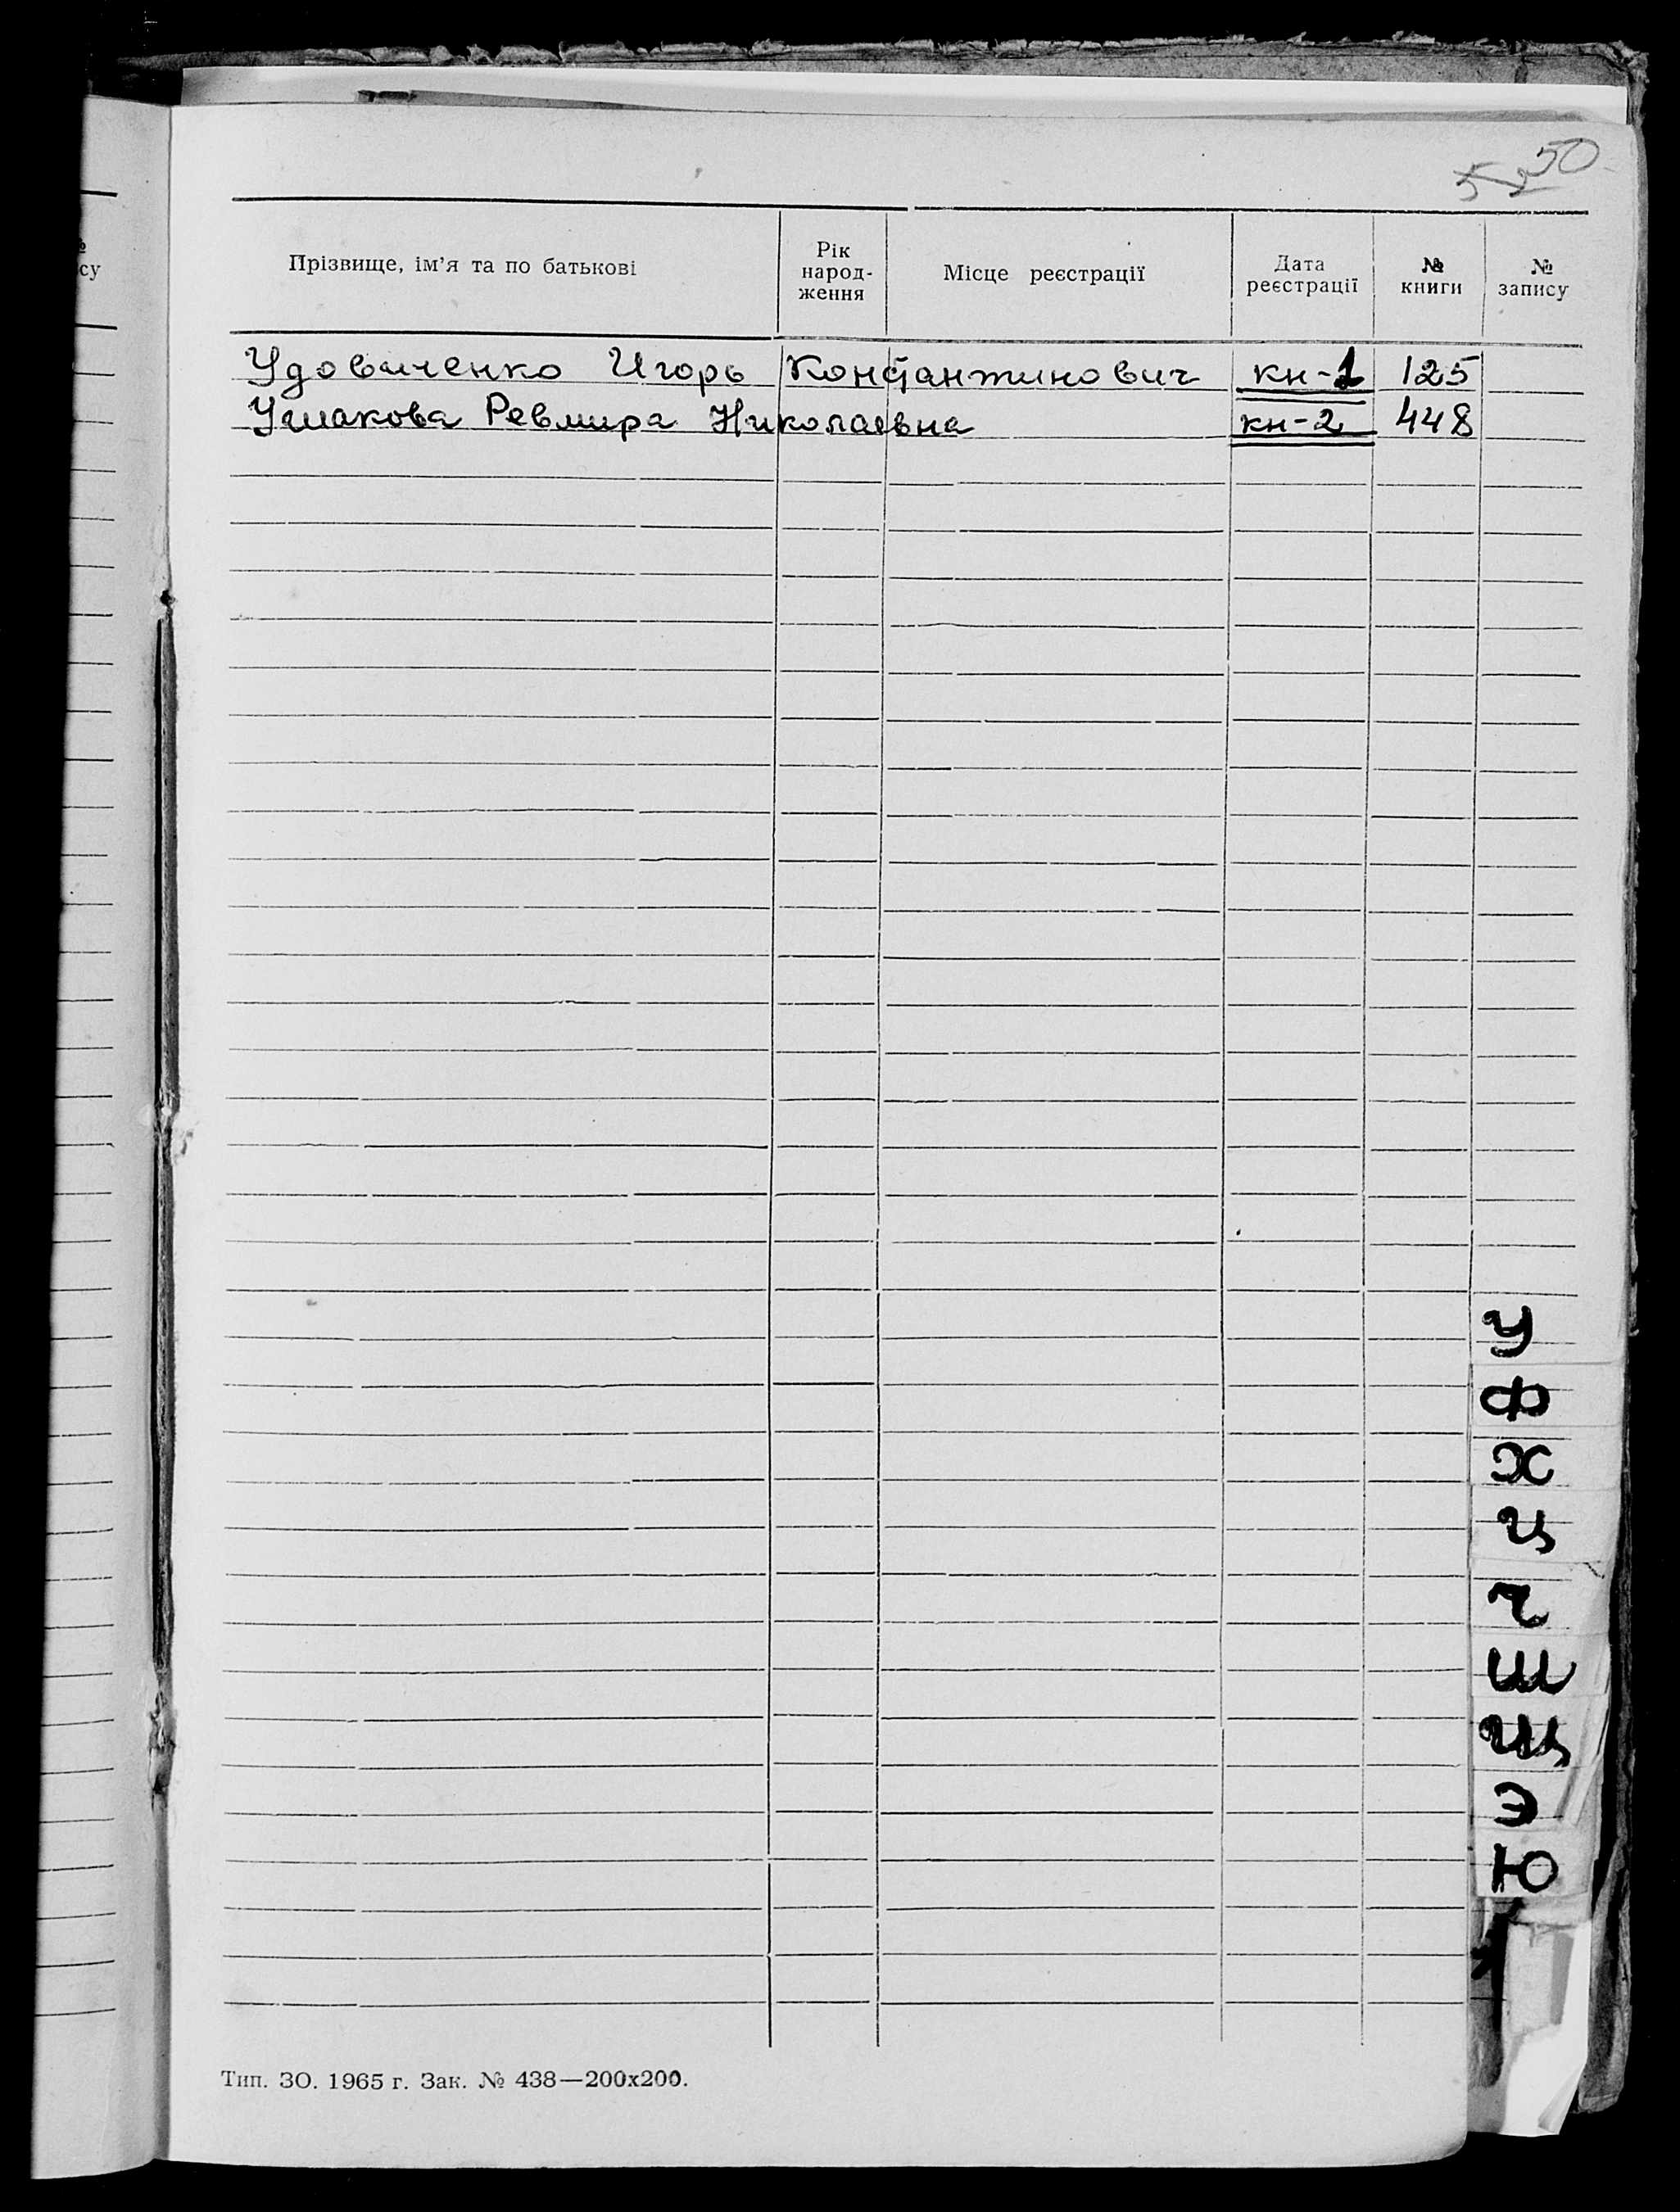 50
Прізвище, ім'я та по батькові Рік народ-ження Місце реєстрації Дата реєстрації № книги № запису
Удовиченко Игорь Константинович кн-1 125
Ушакова Ревмира Николаевна кн-2 448
У
Ф
Х
Ц
Ч
Ш
Щ
Э
Ю
Тип. ЗО. 1965 г. Зак. № 438—200х200.